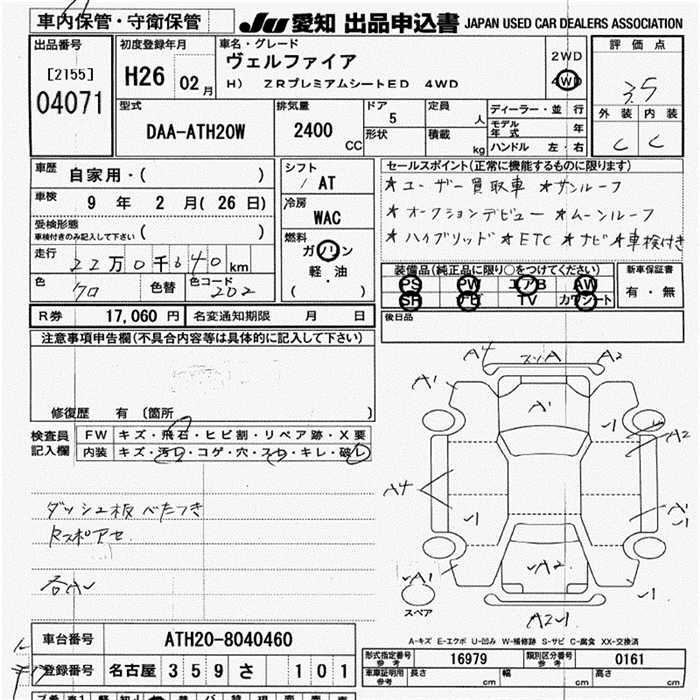 車内保管・守衛保管
JU 愛知 出品申込書 JAPAN USED CAR DEALERS ASSOCIATION
出品番号
[2155]
04071
初度登録年月
H26 02月
車名・グレード
ヴェルファイア
H) ZRプレミアムシートED 4WD
2WD
4WD
評価点
3.5
外装 内装
C C
型式
DAA-ATH20W
排気量
2400 CC
ドア 5
形状
定員 人
積載 kg
ディーラー・並行
モデル年式 年
ハンドル 左・右
車歴
自家用・( )
車検
9 年 2 月( 26 日)
受検形態
車検付きのみ記入して下さい ( )
走行
22万0千640km
色 クロ 色替 色コード 202
シフト
AT
冷房
WAC
燃料
ガソリン
軽・油
( )
セールスポイント(正常に機能するものに限ります)
★ユーザー買取車 ★サンルーフ
★オークションデビュー ★ムーンルーフ
★ハイブリッド ★ETC ★ナビ ★車検付き
装備品(純正品に限り○をつけてください)
PS PW エアB AW
SR ナビ TV カワシート
新車保証書
有・無
R券 17,060 円 名変通知期限 月 日
後日品
注意事項申告欄(不具合内容等は具体的に記入して下さい)
修復歴 有 (箇所 )
検査員記入欄
FW キズ・飛石・ヒビ割・リペア跡・X要
内装 キズ・汚れ・コゲ・穴・スレ・キレ・破レ
ダッシュ板 べたつき
A4 A A2
A1 A1 A2
A4 A2
A1
A2
スペア
A-キズ E-エクボ U-凹み W-補修跡 S-サビ C-腐食 XX-交換済
車台番号 ATH20-8040460
登録番号 名古屋 359 さ 101
型式指定番号 参考 16979 類別区分番号 参考 0161
車庫証明用 参考 長さ cm 幅 cm 高さ cm